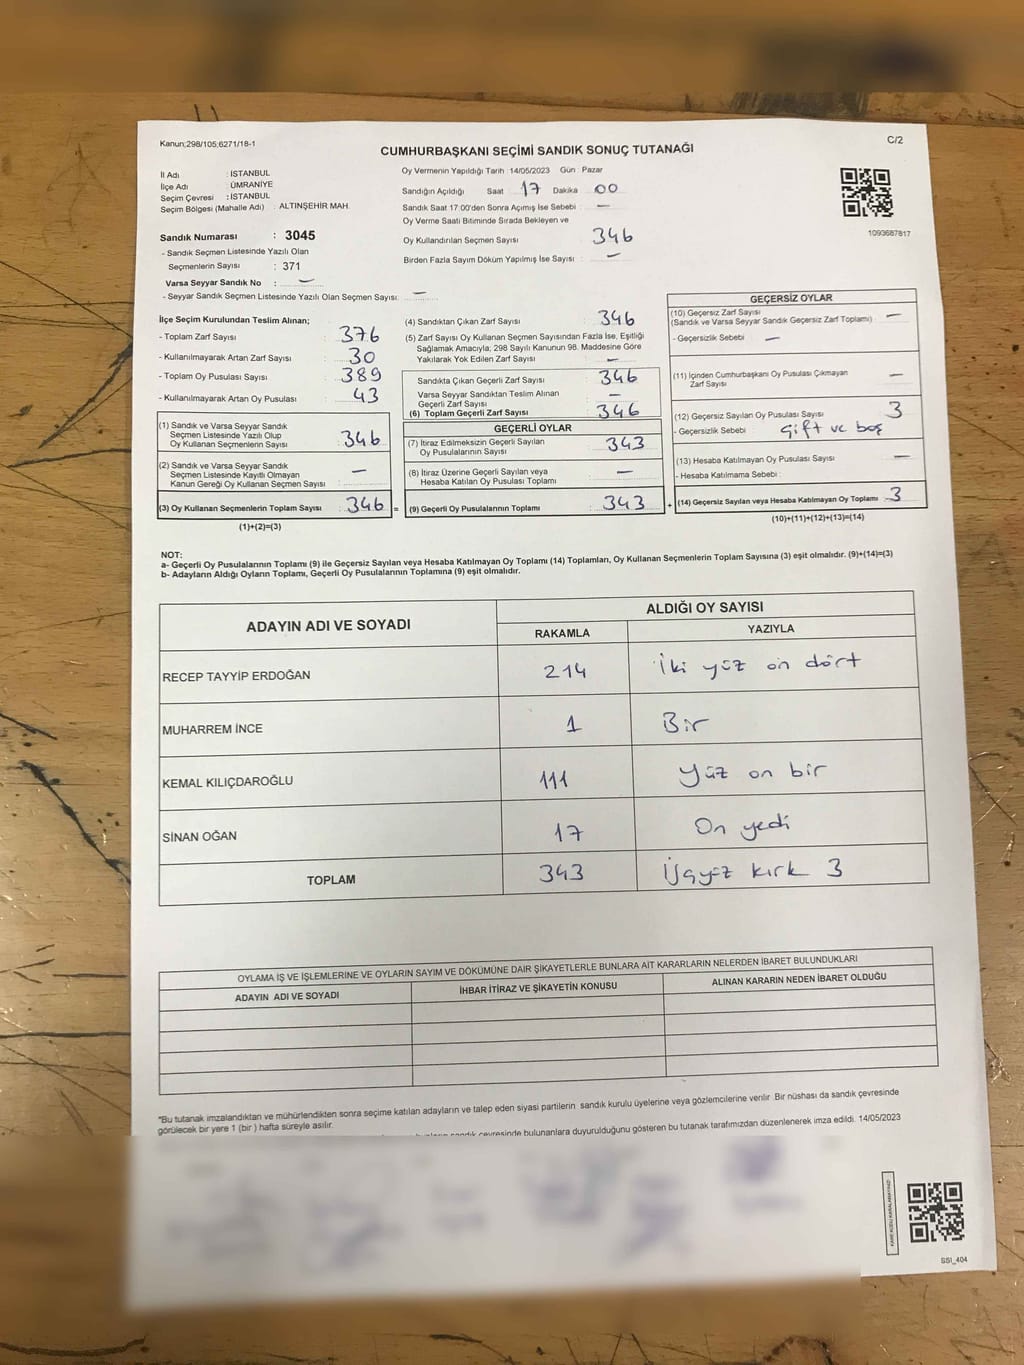 Kanun;298/105;6271/18-1
C/2
CUMHURBAŞKANI SEÇİMİ SANDIK SONUÇ TUTANAĞI
İl Adı : İSTANBUL
İlçe Adı : ÜMRANİYE
Seçim Çevresi : İSTANBUL
Seçim Bölgesi (Mahalle Adı) : ALTINŞEHİR MAH.
Sandık Numarası : 3045
- Sandık Seçmen Listesinde Yazılı Olan
Seçmenlerin Sayısı : 371
Varsa Seyyar Sandık No : —
- Seyyar Sandık Seçmen Listesinde Yazılı Olan Seçmen Sayısı: —
Oy Vermenin Yapıldığı Tarih :14/05/2023 Gün : Pazar
Sandığın Açıldığı Saat 17 Dakika 00
Sandık Saat 17:00'den Sonra Açımış İse Sebebi : —
Oy Verme Saati Bitiminde Sırada Bekleyen ve
Oy Kullandırılan Seçmen Sayısı 346
Birden Fazla Sayım Döküm Yapılmış İse Sayısı : —
1093687817
İlçe Seçim Kurulundan Teslim Alınan;
- Toplam Zarf Sayısı : 376
- Kullanılmayarak Artan Zarf Sayısı : 30
- Toplam Oy Pusulası Sayısı : 389
- Kullanılmayarak Artan Oy Pusulası : 43
(1) Sandık ve Varsa Seyyar Sandık
Seçmen Listesinde Yazılı Olup
Oy Kullanan Seçmenlerin Sayısı : 346
(2) Sandık ve Varsa Seyyar Sandık
Seçmen Listesinde Kayıtlı Olmayan
Kanun Gereği Oy Kullanan Seçmen Sayısı : —
(3) Oy Kullanan Seçmenlerin Toplam Sayısı : 346
(1)+(2)=(3)
(4) Sandıktan Çıkan Zarf Sayısı : 346
(5) Zarf Sayısı Oy Kullanan Seçmen Sayısından Fazla İse, Eşitliği
Sağlamak Amacıyla; 298 Sayılı Kanunun 98. Maddesine Göre
Yakılarak Yok Edilen Zarf Sayısı : —
Sandıkta Çıkan Geçerli Zarf Sayısı : 346
Varsa Seyyar Sandıktan Teslim Alınan
Geçerli Zarf Sayısı : —
(6) Toplam Geçerli Zarf Sayısı : 346
GEÇERLİ OYLAR
(7) İtiraz Edilmeksizin Geçerli Sayılan
Oy Pusulalarının Sayısı : 343
(8) İtiraz Üzerine Geçerli Sayılan veya
Hesaba Katılan Oy Pusulası Toplamı : —
= (9) Geçerli Oy Pusulalarının Toplamı : 343
GEÇERSİZ OYLAR
(10) Geçersiz Zarf Sayısı
(Sandık ve Varsa Seyyar Sandık Geçersiz Zarf Toplamı) : —
- Geçersizlik Sebebi : —
(11) İçinden Cumhurbaşkanı Oy Pusulası Çıkmayan
Zarf Sayısı : —
(12) Geçersiz Sayılan Oy Pusulası Sayısı : 3
- Geçersizlik Sebebi : çift ve boş
(13) Hesaba Katılmayan Oy Pusulası Sayısı : —
- Hesaba Katılmama Sebebi :
+ (14) Geçersiz Sayılan veya Hesaba Katılmayan Oy Toplamı : 3
(10)+(11)+(12)+(13)=(14)
NOT:
a- Geçerli Oy Pusulalarının Toplamı (9) ile Geçersiz Sayılan veya Hesaba Katılmayan Oy Toplamı (14) Toplamları, Oy Kullanan Seçmenlerin Toplam Sayısına (3) eşit olmalıdır. (9)+(14)=(3)
b- Adayların Aldığı Oyların Toplamı, Geçerli Oy Pusulalarının Toplamına (9) eşit olmalıdır.
ADAYIN ADI VE SOYADI
ALDIĞI OY SAYISI
RAKAMLA YAZIYLA
RECEP TAYYİP ERDOĞAN 214 İki yüz on dört
MUHARREM İNCE 1 Bir
KEMAL KILIÇDAROĞLU 111 yüz on bir
SİNAN OĞAN 17 On yedi
TOPLAM 343 Üçyüz kırk 3
OYLAMA İŞ VE İŞLEMLERİNE VE OYLARIN SAYIM VE DÖKÜMÜNE DAİR ŞİKAYETLERLE BUNLARA AİT KARARLARIN NELERDEN İBARET BULUNDUKLARI
ADAYIN ADI VE SOYADI İHBAR İTİRAZ VE ŞİKAYETİN KONUSU ALINAN KARARIN NEDEN İBARET OLDUĞU
*Bu tutanak imzalandıktan ve mühürlendikten sonra seçime katılan adayların ve talep eden siyasi partilerin sandık kurulu üyelerine veya gözlemcilerine verilir .Bir nüshası da sandık çevresinde
görülecek bir yere 1 (bir ) hafta süreyle asılır.
sandık çevresinde bulunanlara duyurulduğunu gösteren bu tutanak tarafımızdan düzenlenerek imza edildi. 14/05/2023
SSI_404